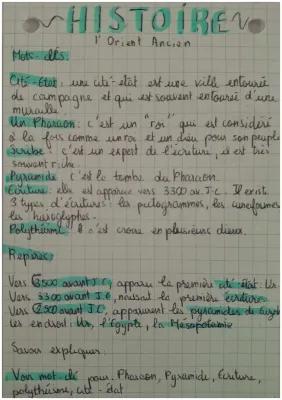 HISTOIRE
l'Orient Ancien
Mots-clés:
Cité-Etat: une cité-état est une ville entourée
de campagne et qui est souvent entourée d'une
muraille.
Un Pharaon: c'est un "roi" qui est considéré
à la fois comme un roi et un dieu pour son peuple
Scribe: c'est un expert de l'écriture, il est très
souvent riche.
Pyramide: c'est le tombe du Pharaon.
Ecriture: elle est apparue vers 3300 av. J.C. Il existe
3 types d'écritures: les pictogrammes, les cuneiformes
les hieroglyphes.
Polythéisme: c'est croire en plusieurs dieux.
Repères:
Vers 3500 avant J.C, apparu la première cité-état: Ur.
Vers 3300 avant J.C, naissait la première écriture
Vers 2500 avant J.C, apparurent les pyramides de
les endroit: Ur, l'égypte, la Mésopotamie
Savoir expliquer:
Voir mot-clé pour: Pharaon, Pyramide, Ecriture,
polythéisme, cité-état